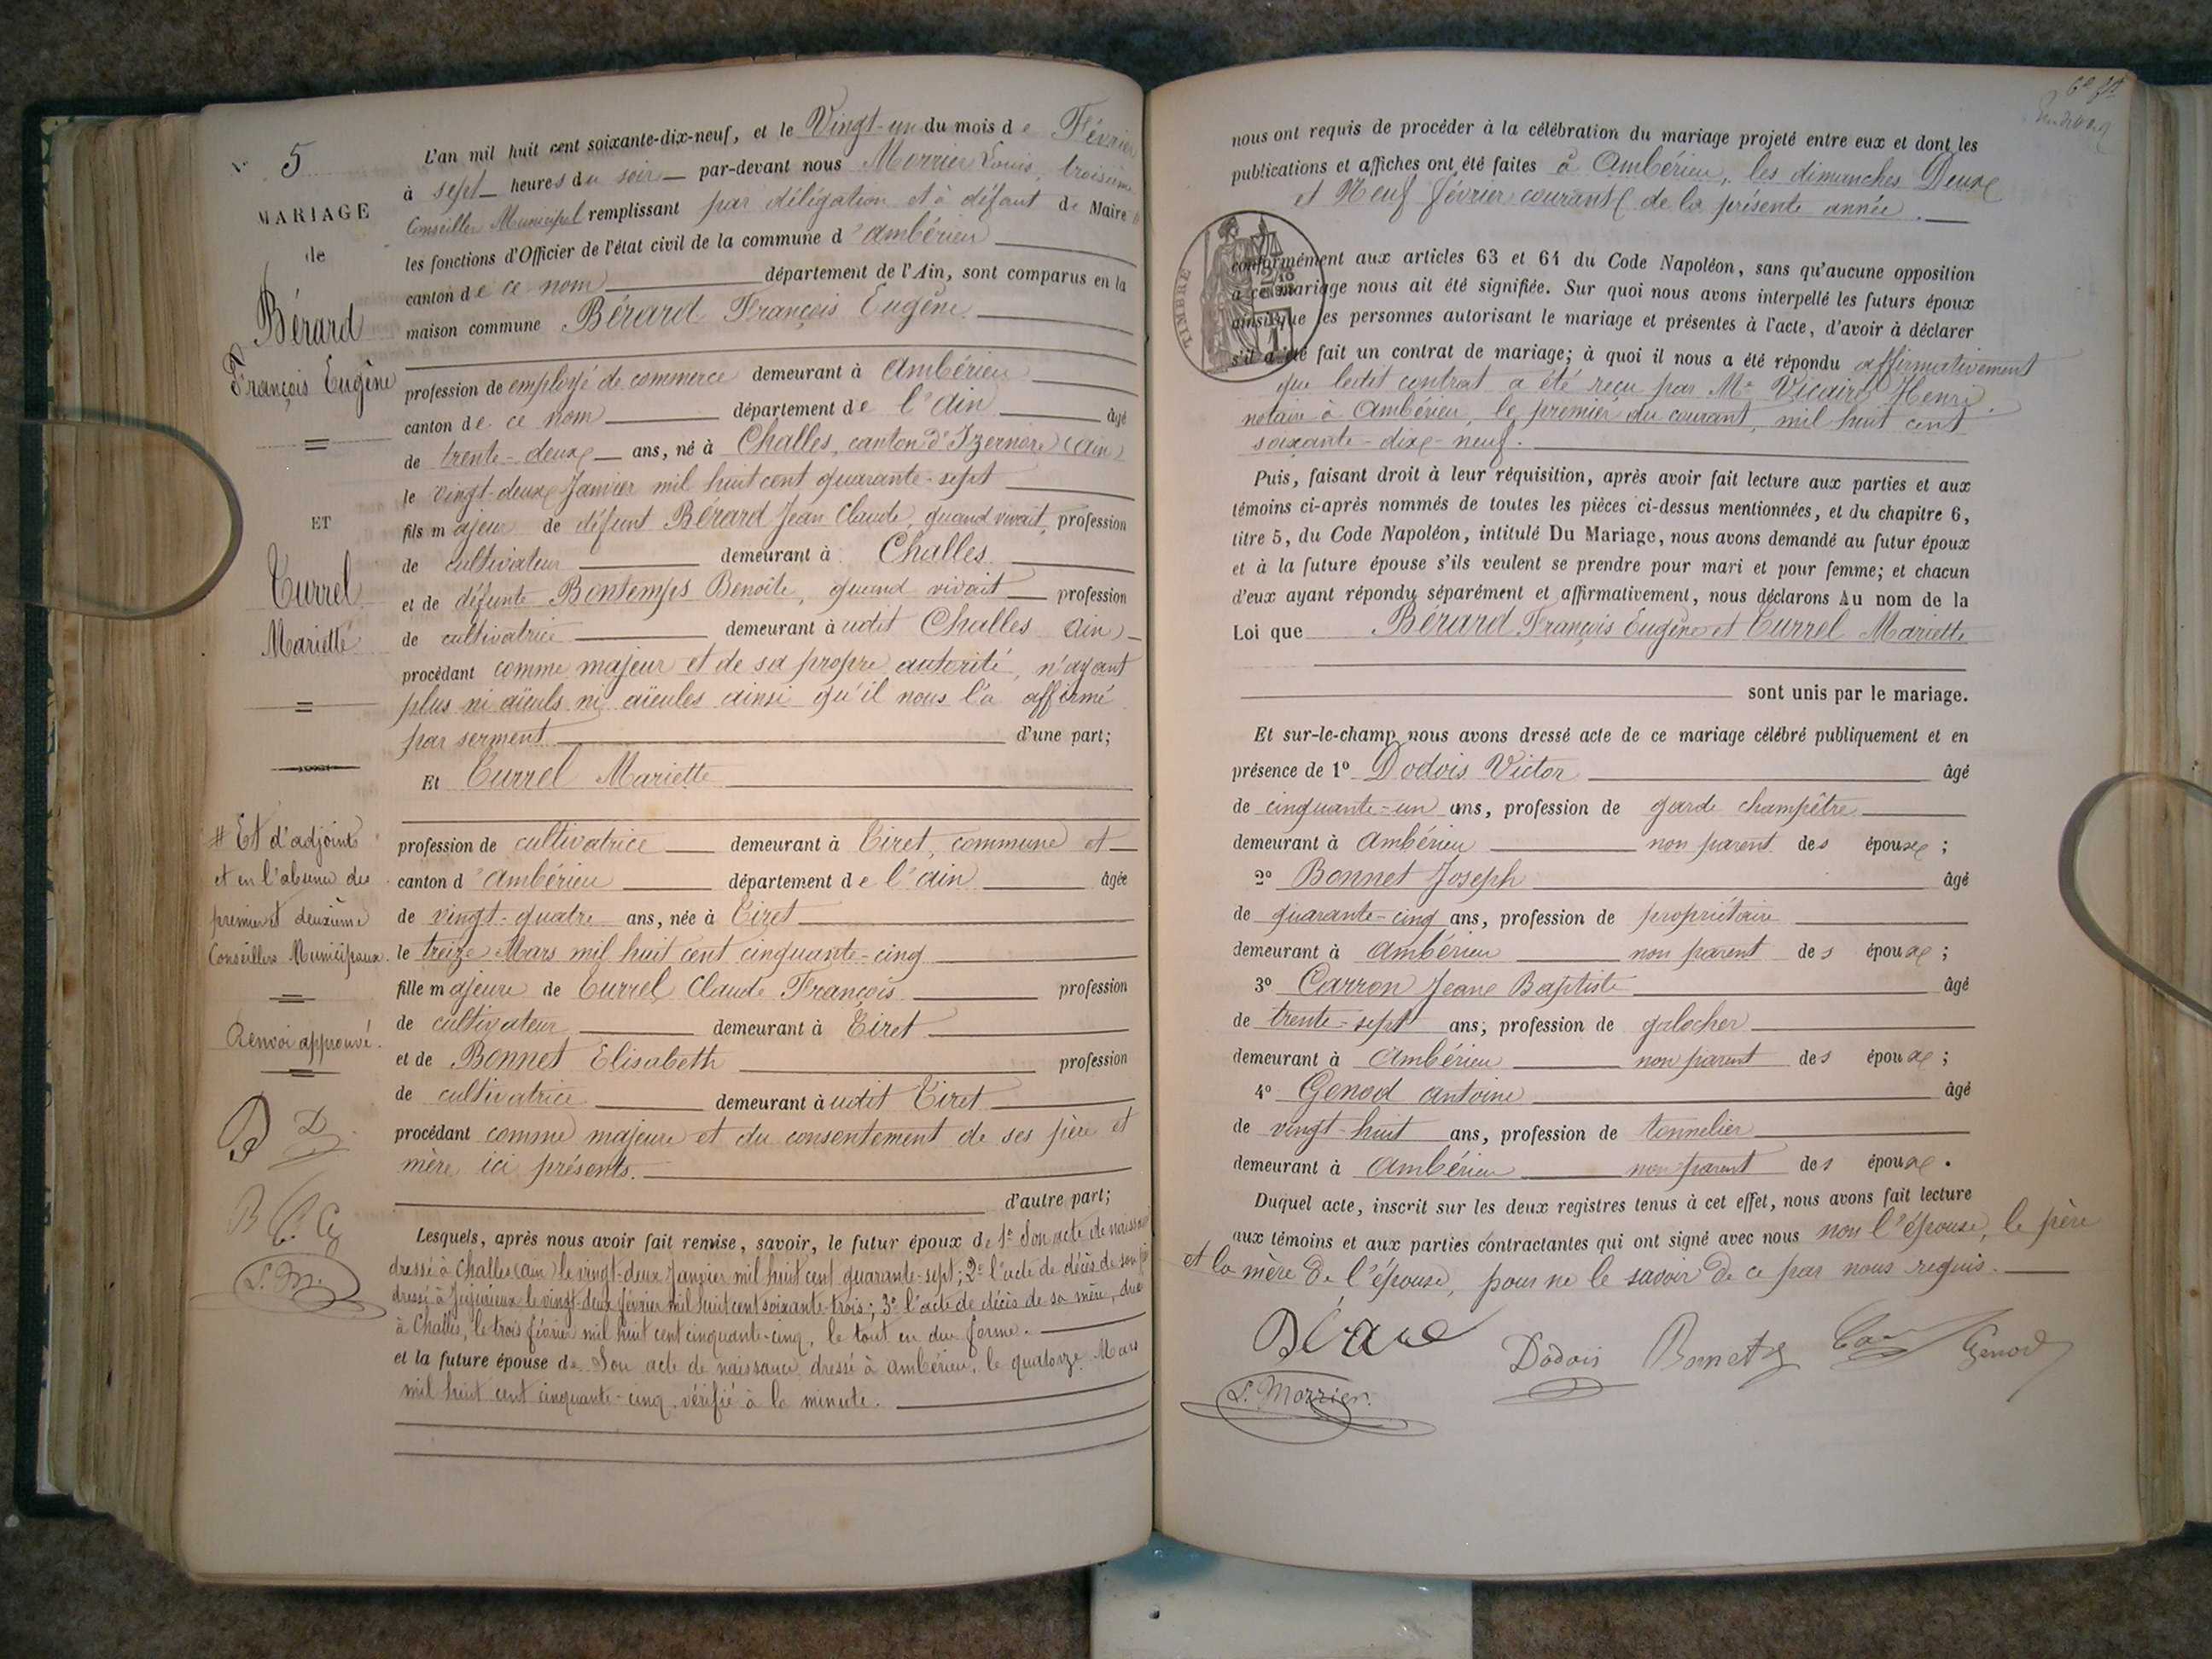 N° 5
MARIAGE
de
Bérard
François Eugène
ET
Currel
Mariette
# Et d'adjoints
et en l'absence des
premier et deuxième
Conseillers Municipaux.
Renvoi approuvé.
B D
B C. G
L. M.
L'an mil huit cent soixante-dix-neuf, et le Vingt-un du mois de Février
à sept heures du soir par-devant nous Morrier Louis, troisième
Conseiller Municipal remplissant par délégation et à défaut de Maire #
les fonctions d'Officier de l'état civil de la commune d'Ambérieu
canton de ce nom département de l'Ain, sont comparus en la
maison commune Bérard François Eugène
profession de employé de commerce demeurant à Ambérieu
canton de ce nom département de l'Ain âgé
de trente-deux ans, né à Challes, canton d'Izernore (Ain)
le vingt-deux Janvier mil huit cent quarante-sept
fils majeur de défunt Bérard Jean Claude, quand vivait, profession
de cultivateur demeurant à Challes
et de défunte Bontemps Benoite, quand vivait profession
de cultivatrice demeurant àudit Challes Ain)
procédant comme majeur et de sa propre autorité, n'ayant
plus ni aïeuls ni aïeules ainsi qu'il nous l'a affirmé
par serment d'une part;
Et Currel Mariette
profession de cultivatrice demeurant à Tiret, commune et
canton d'Ambérieu département de l'Ain âgée
de vingt-quatre ans, née à Tiret
le treize Mars mil huit cent cinquante-cinq
fille majeure de Currel Claude François profession
de cultivateur demeurant à Tiret
et de Bonnet Elisabeth profession
de cultivatrice demeurant àudit Tiret
procédant comme majeure et du consentement de ses père et
mère ici présents.
d'autre part;
Lesquels, après nous avoir fait remise, savoir, le futur époux de 1° Son acte de naissance
dressé à Challes (Ain) le vingt-deux Janvier mil huit cent quarante-sept; 2° l'acte de décès de son
dressé à Jujurieux le vingt-deux février mil huit cent soixante-trois; 3° l'acte de décès de sa mère,
à Challes, le trois février mil huit cent cinquante-cinq, le tout en due forme.
et la future épouse de Son acte de naissance dressé à Ambérieu, le quatorze Mars
mil huit cent cinquante-cinq, vérifié à la minute.
nous ont requis de procéder à la célébration du mariage projeté entre eux et dont les
publications et affiches ont été faites à Ambérieu, les dimanches Deux
et Neuf février courant de la présente année.
TIMBRE
conformément aux articles 63 et 64 du Code Napoléon, sans qu'aucune opposition
à ce mariage nous ait été signifiée. Sur quoi nous avons interpellé les futurs époux
ainsi que les personnes autorisant le mariage et présentes à l'acte, d'avoir à déclarer
s'il a été fait un contrat de mariage; à quoi il nous a été répondu affirmativement
que ledit contrat a été reçu par Me Vicaire Henri
notaire à Ambérieu, le premier du courant, mil huit cent
soixante-dix-neuf.
Puis, faisant droit à leur réquisition, après avoir fait lecture aux parties et aux
témoins ci-après nommés de toutes les pièces ci-dessus mentionnées, et du chapitre 6,
titre 5, du Code Napoléon, intitulé Du Mariage, nous avons demandé au futur époux
et à la future épouse s'ils veulent se prendre pour mari et pour femme; et chacun
d'eux ayant répondu séparément et affirmativement, nous déclarons Au nom de la
Loi que Bérard François Eugène et Currel Mariette
sont unis par le mariage.
Et sur-le-champ nous avons dressé acte de ce mariage célébré publiquement et en
présence de 1° Dodois Victor âgé
de cinquante-un ans, profession de garde champêtre
demeurant à Ambérieu non parent des époux;
2° Bonnet Joseph âgé
de quarante-cinq ans, profession de propriétaire
demeurant à Ambérieu non parent des époux;
3° Carron Jeane Baptiste âgé
de trente-sept ans; profession de galocher
demeurant à Ambérieu non parent des époux;
4° Genod Antoine âgé
de vingt-huit ans, profession de tonnelier
demeurant à Ambérieu non parent des époux.
Duquel acte, inscrit sur les deux registres tenus à cet effet, nous avons fait lecture
aux témoins et aux parties contractantes qui ont signé avec nous non l'épouse, le père
et la mère de l'épouse, pour ne le savoir de ce par nous requis.
Dodois Bonnet Genod
L. Morrier.